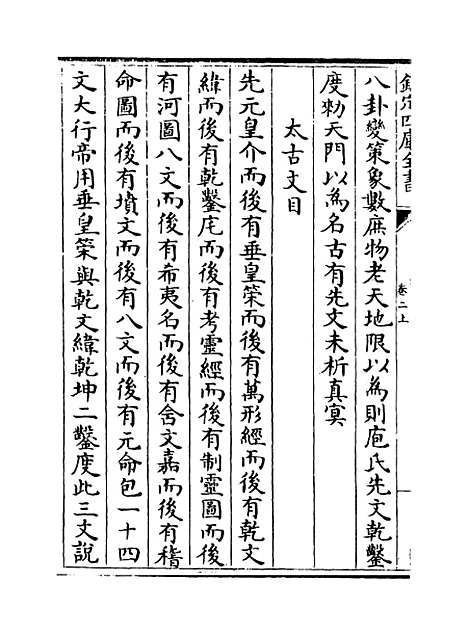 欽定四庫全書
卷二上
八卦變策象數庶物老天地限以為則庖氏先文乾鑿
度勑天門以為名古有先文未析真冥
太古文目
先元皇介而後有垂皇策而後有萬形經而後有乾文
緯而後有乾鑿庑而後有考靈經而後有制靈圖而後
有河圖八文而後有希夷名而後有含文嘉而後有稽
命圖而後有墳文而後有八文而後有元命包一十四
文大行帝用垂皇策與乾文緯乾坤二鑿度此三文說